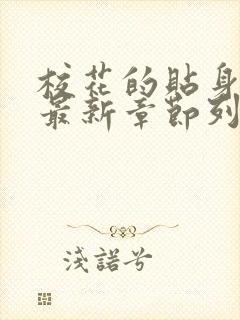 校花的貼身
最新章節列
淺諾兮